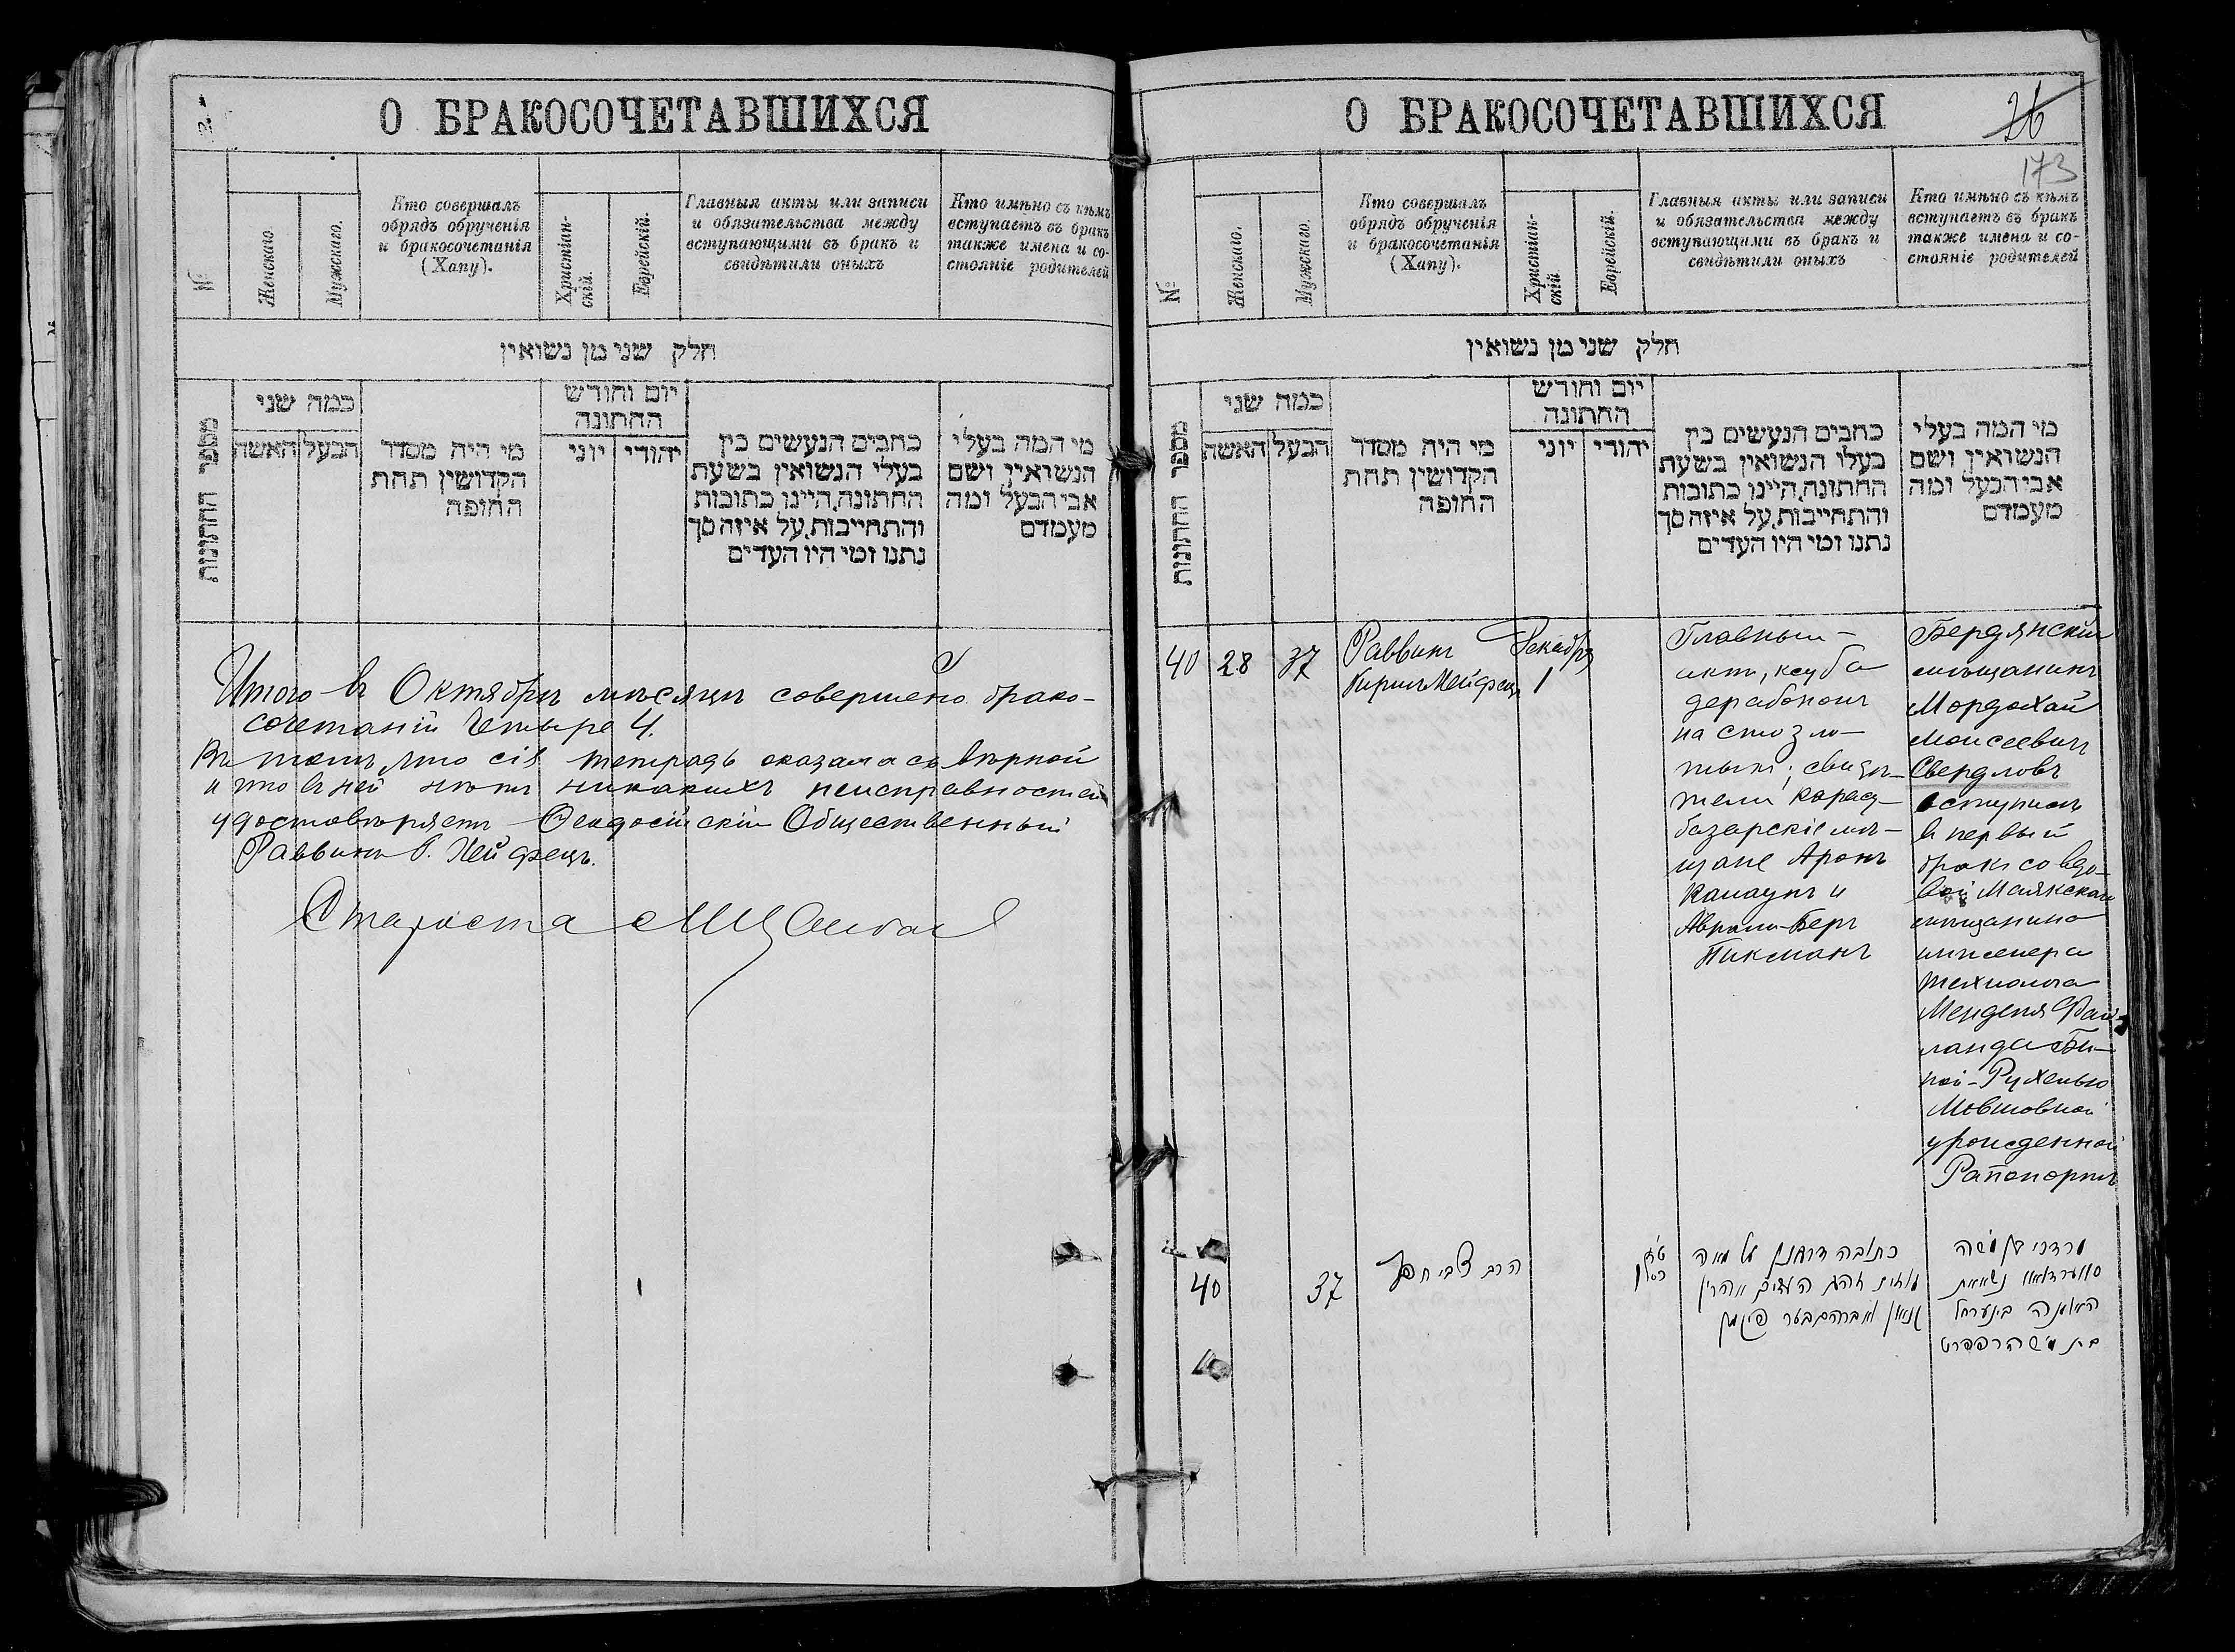 О БРАКОСОЧЕТАВШИХСЯ
№
Женскаго.
Мужскаго.
Кто совершалъ
обрядъ обрученія
и бракосочетанія
(Хапу).
Христіан-
скій.
Еврейскій.
Главныя акты или записи
и обязательства между
вступающими въ бракъ и
свидѣтили оныхъ
Кто имѣно съ кѣмъ
вступаетъ въ бракъ
также имена и со-
стояніе родителей
חלק שני מן נשואין
מספר החתונות
כמה שני
האשה
הבעל
מי היה מסדר
הקדושין תחת
החופה
יום וחודש
החתונה
יוני
יהודי
כתבים הנעשים בין
בעלי הנשואין בשעת
החתונה, היינו כתובות
והתחייבות, על איזה סך
נתנו ומי היו העדים
מי המה בעלי
הנשואין ושם
אבי הבעל ומה
מעמדם
Итого въ Октябрѣ мѣсяцѣ совершено брако-
сочетаній четыре 4.
Въ томъ, что сія тетрадь оказалась вѣрной
и что въ ней нѣтъ никакихъ неисправностей
удостовѣряетъ Ѳеодосійскій Общественный
Раввинъ Б. Хейфецъ.
Староста
О БРАКОСОЧЕТАВШИХСЯ
26
173
№
Женскаго.
Мужскаго.
Кто совершалъ
обрядъ обрученія
и бракосочетанія
(Хапу).
Христіан-
скій
Еврейскій.
Главныя акты или записи
и обязательства между
вступающими въ бракъ и
свидѣтили оныхъ
Кто имѣно съ кѣмъ
вступаетъ въ бракъ
также имена и со-
стояніе родителей
חלק שני מן נשואין
מספר החתונות
כמה שני
האשה
הבעל
מי היה מסדר
הקדושין תחת
החופה
יום וחודש
החתונה
יוני
יהודי
כתבים הנעשים בין
בעלי הנשואין בשעת
החתונה, היינו כתובות
והתחייבות, על איזה סך
נתנו ומי היו העדים
מי המה בעלי
הנשואין ושם
אבי הבעל ומה
מעמדם
40
28
37
Раввинъ
Хейфецъ
Декабря
1
Главный
актъ, ксуба
дерабонон
на сто зло-
тыхъ; свидѣ-
тели Карасу-
базарскіе мѣ-
щане Аронъ
и
Авраам-Беръ
Пикманъ
Бердянскій
мѣщанинъ
Мордохай
Моисеевичъ
Свердловъ
вступилъ
въ первый
бракъ со вдо-
вой Маякскаго
мѣщанина
инженера
технолога
Менделя Фай-
ланда Бей-
ной-Рухелью
Мовшовной
урожденной
Рапопортъ
40
37
הרב צבי חפץ
כתובה דרבנן על מאה
מרדכי בן משה
בת משה רפפרט